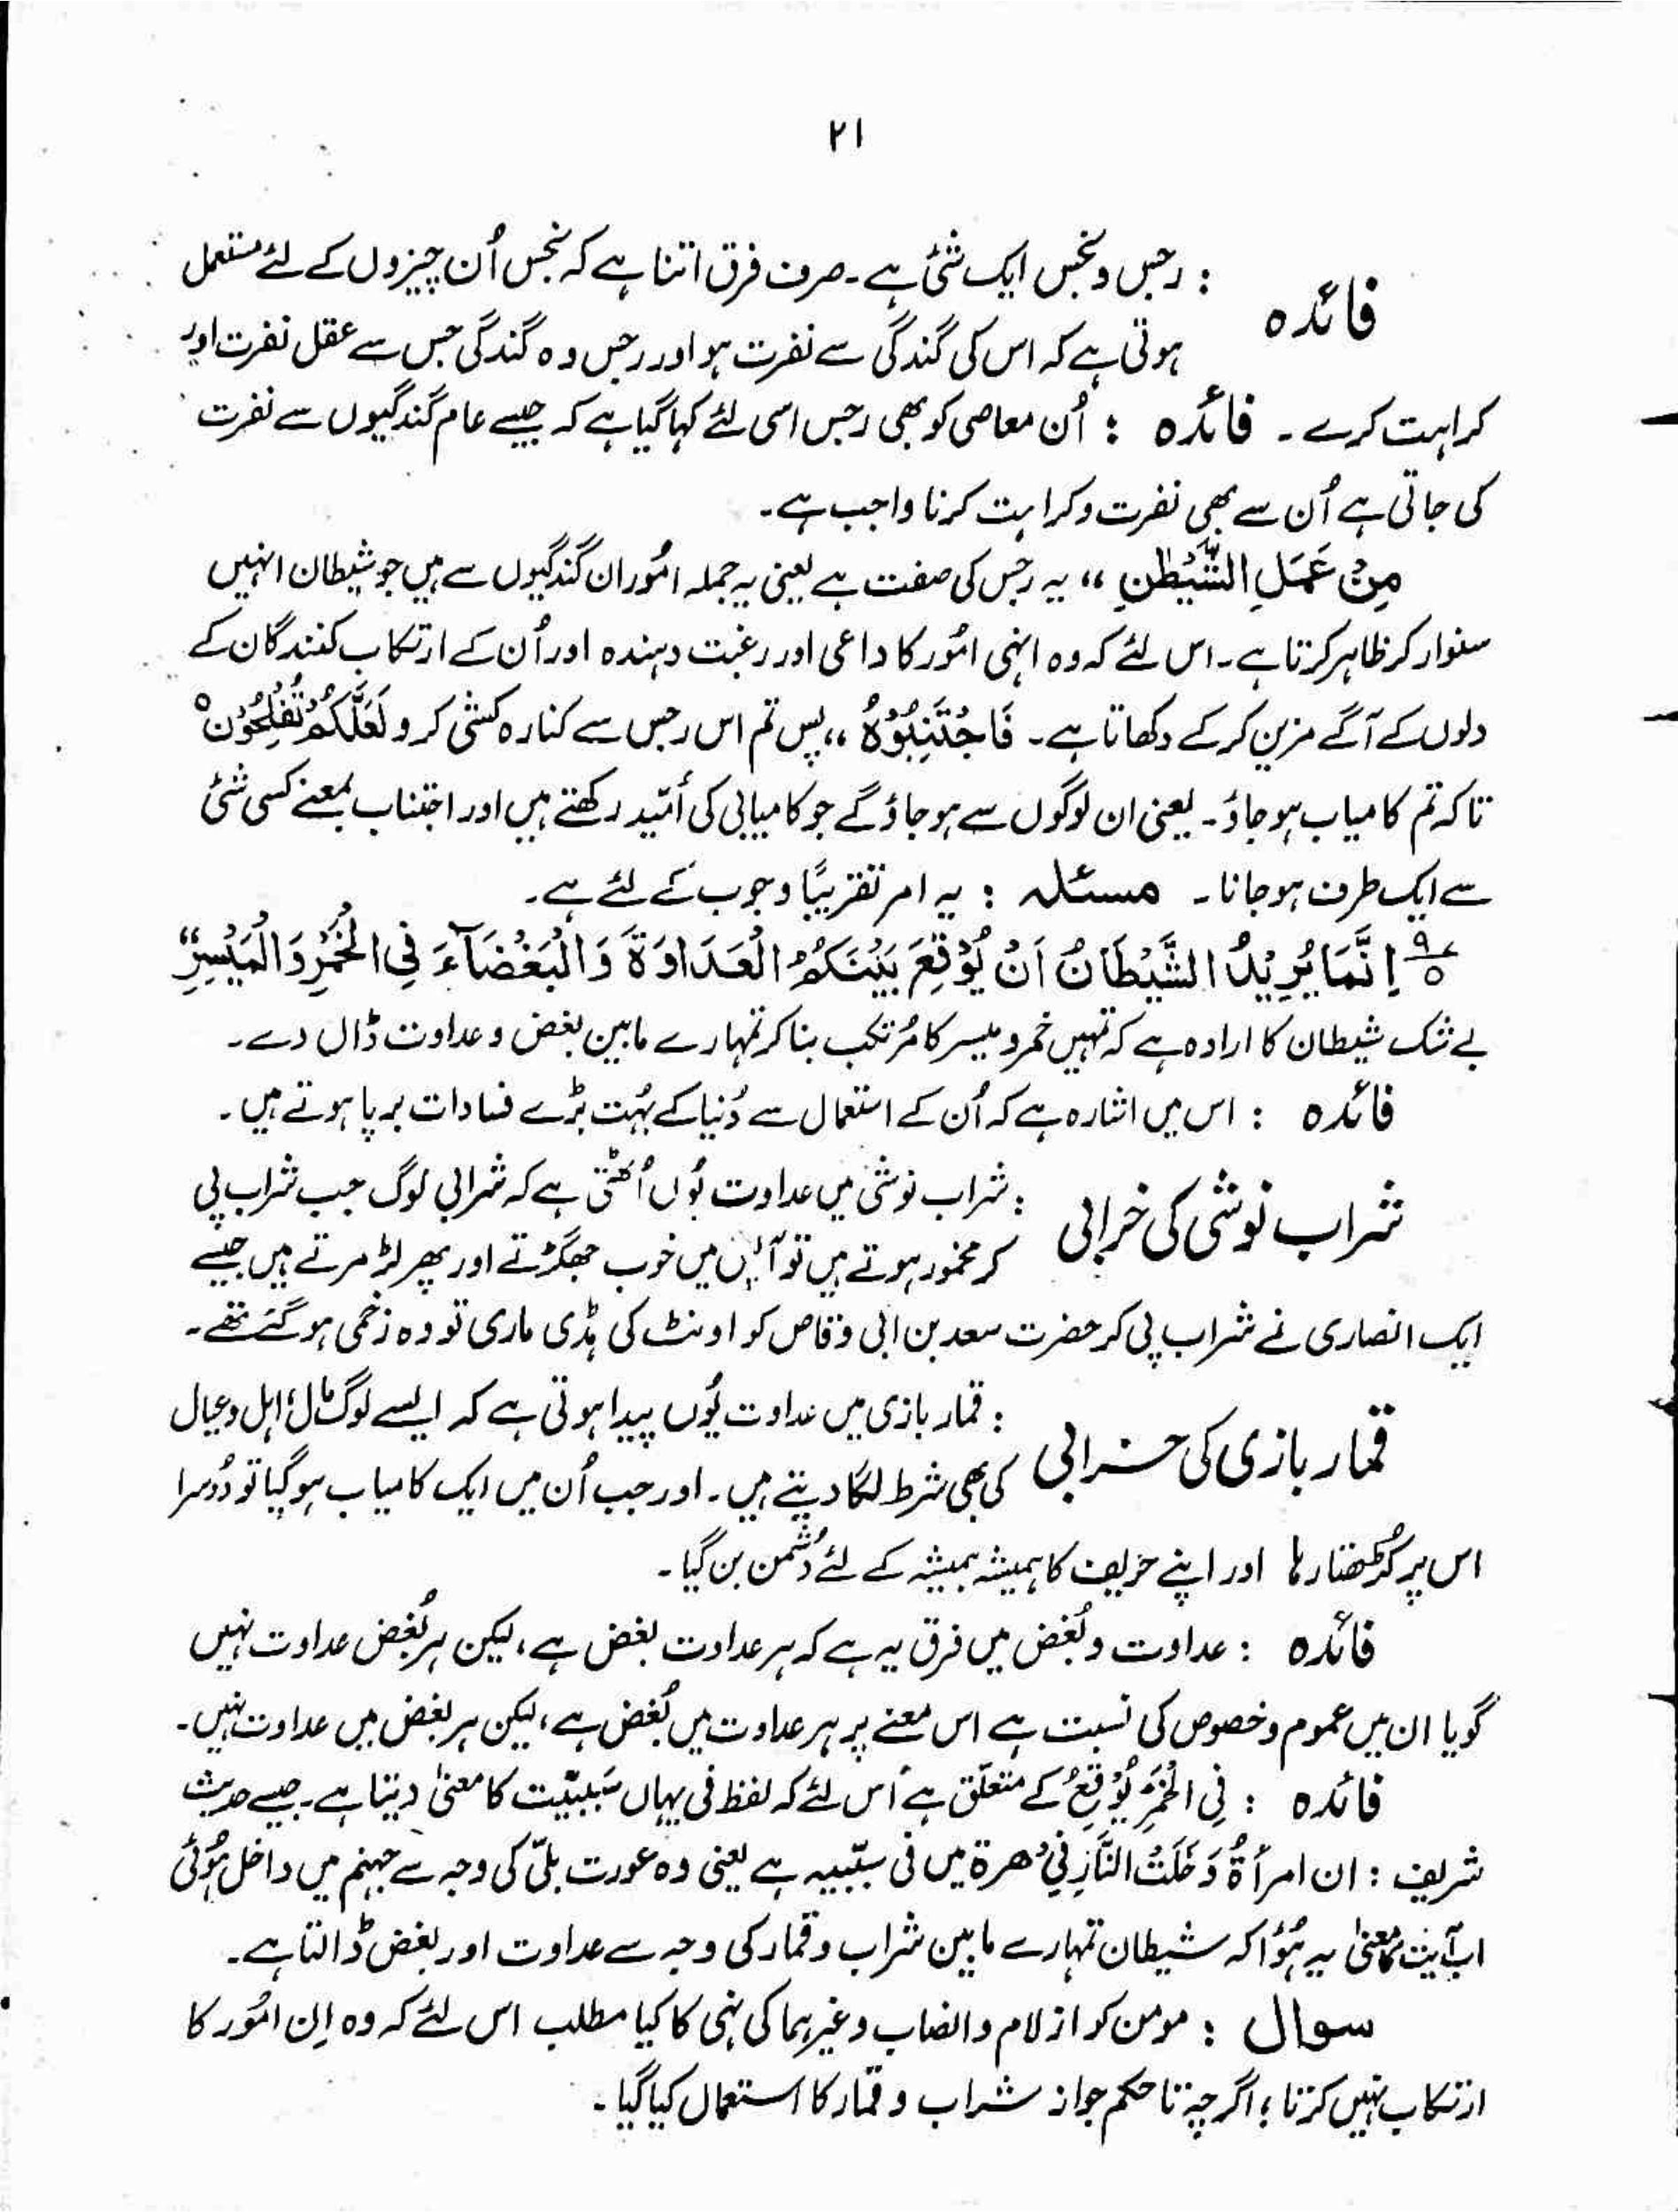 ۲۱
فائدہ : رجس و نجس ایک شئ ہے۔ صرف فرق اتنا ہے کہ نجس اُن چیزوں کے لئے مستعمل
ہوتی ہے کہ اس کی گندگی سے نفرت ہو اور رجس وہ گندگی جس سے عقل نفرت اور
کراہت کرے ۔ فائدہ : اُن معاصی کو بھی رجس اسی لئے کہا گیا ہے کہ جیسے عام گندگیوں سے نفرت
کی جاتی ہے اُن سے بھی نفرت و کراہت کرنا واجب ہے۔
مِنْ عَمَلِ الشَّيْطٰنِ ،، یہ رجس کی صفت ہے یعنی یہ جملہ امُور ان گندگیوں سے ہیں جو شیطان انہیں
سنوار کر ظاہر کرتا ہے۔ اس لئے کہ وہ انہی امُور کا داعی اور رغبت دہندہ اور اُن کے ارتکاب کنندگان کے
دلوں کے آگے مزین کر کے دکھاتا ہے۔ فَاجْتَنِبُوْهُ ،، پس تم اس رجس سے کنارہ کشی کرو لَعَلَّكُمْ تُفْلِحُوْنَ ہ
تاکہ تم کامیاب ہو جاؤ۔ یعنی ان لوگوں سے ہو جاؤ گے جو کامیابی کی اُمّید رکھتے ہیں اور اجتناب بمعنے کسی شئ
سے ایک طرف ہو جانا ۔ مسئلہ : یہ امر تقریبًا وجوب کے لئے ہے۔
۹/۵ اِنَّمَا يُرِيْدُ الشَّيْطَانُ اَنْ يُّوْقِعَ بَيْنَكُمُ الْعَدَاوَةَ وَالْبَغْضَآءَ فِي الْخَمْرِ وَالْمَيْسِرِ ،،
بے شک شیطان کا ارادہ ہے کہ تمہیں خمر و میسر کا مُرتکب بنا کر تمہارے مابین بغض و عداوت ڈال دے۔
فائدہ : اس میں اشارہ ہے کہ اُن کے استعمال سے دُنیا کے بہُت بڑے فسادات برپا ہوتے ہیں۔
شراب نوشی کی خرابی : شراب نوشی میں عداوت یُوں اُٹھتی ہے کہ شرابی لوگ جب شراب پی
کر مخمور ہوتے ہیں تو آپس میں خوب جھگڑتے اور پھر لڑ مرتے ہیں جیسے
ایک انصاری نے شراب پی کر حضرت سعد بن ابی وقاص کو اونٹ کی ہڈی ماری تو وہ زخمی ہو گئے تھے۔
قمار بازی کی خرابی : قمار بازی میں عداوت یُوں پیدا ہوتی ہے کہ ایسے لوگ مال، اہل و عیال
کی بھی شرط لگا دیتے ہیں۔ اور جب اُن میں ایک کامیاب ہو گیا تو دُوسرا
اس پر کُڑھتا رہا اور اپنے حریف کا ہمیشہ ہمیشہ کے لئے دُشمن بن گیا۔
فائدہ : عداوت و بُغض میں فرق یہ ہے کہ ہر عداوت بغض ہے، لیکن ہر بُغض عداوت نہیں
گویا ان میں عموم و خصوص کی نسبت ہے اس معنے پر ہر عداوت میں بُغض ہے، لیکن ہر بغض میں عداوت نہیں۔
فائدہ : فِي الْخَمْرِ يُوْقِعُ کے متعلّق ہے اس لئے کہ لفظ فی یہاں سَببیّت کا معنیٰ دیتا ہے۔ جیسے حدیث
شریف : ان امرأةٌ دَخَلَتْ النَّارَ فِي هرة میں فی سبّبیہ ہے یعنی وہ عورت بلّی کی وجہ سے جہنم میں داخل ہُوئی
اب آیت کا معنیٰ یہ ہُوا کہ شیطان تمہارے مابین شراب و قمار کی وجہ سے عداوت اور بغض ڈالتا ہے۔
سوال : مومن کو ازلام و انصاب وغیرہما کی نہی کا کیا مطلب اس لئے کہ وہ اِن امُور کا
ارتکاب نہیں کرتا ؛ اگرچہ تا حکم جواز شراب و قمار کا استعمال کیا گیا ۔